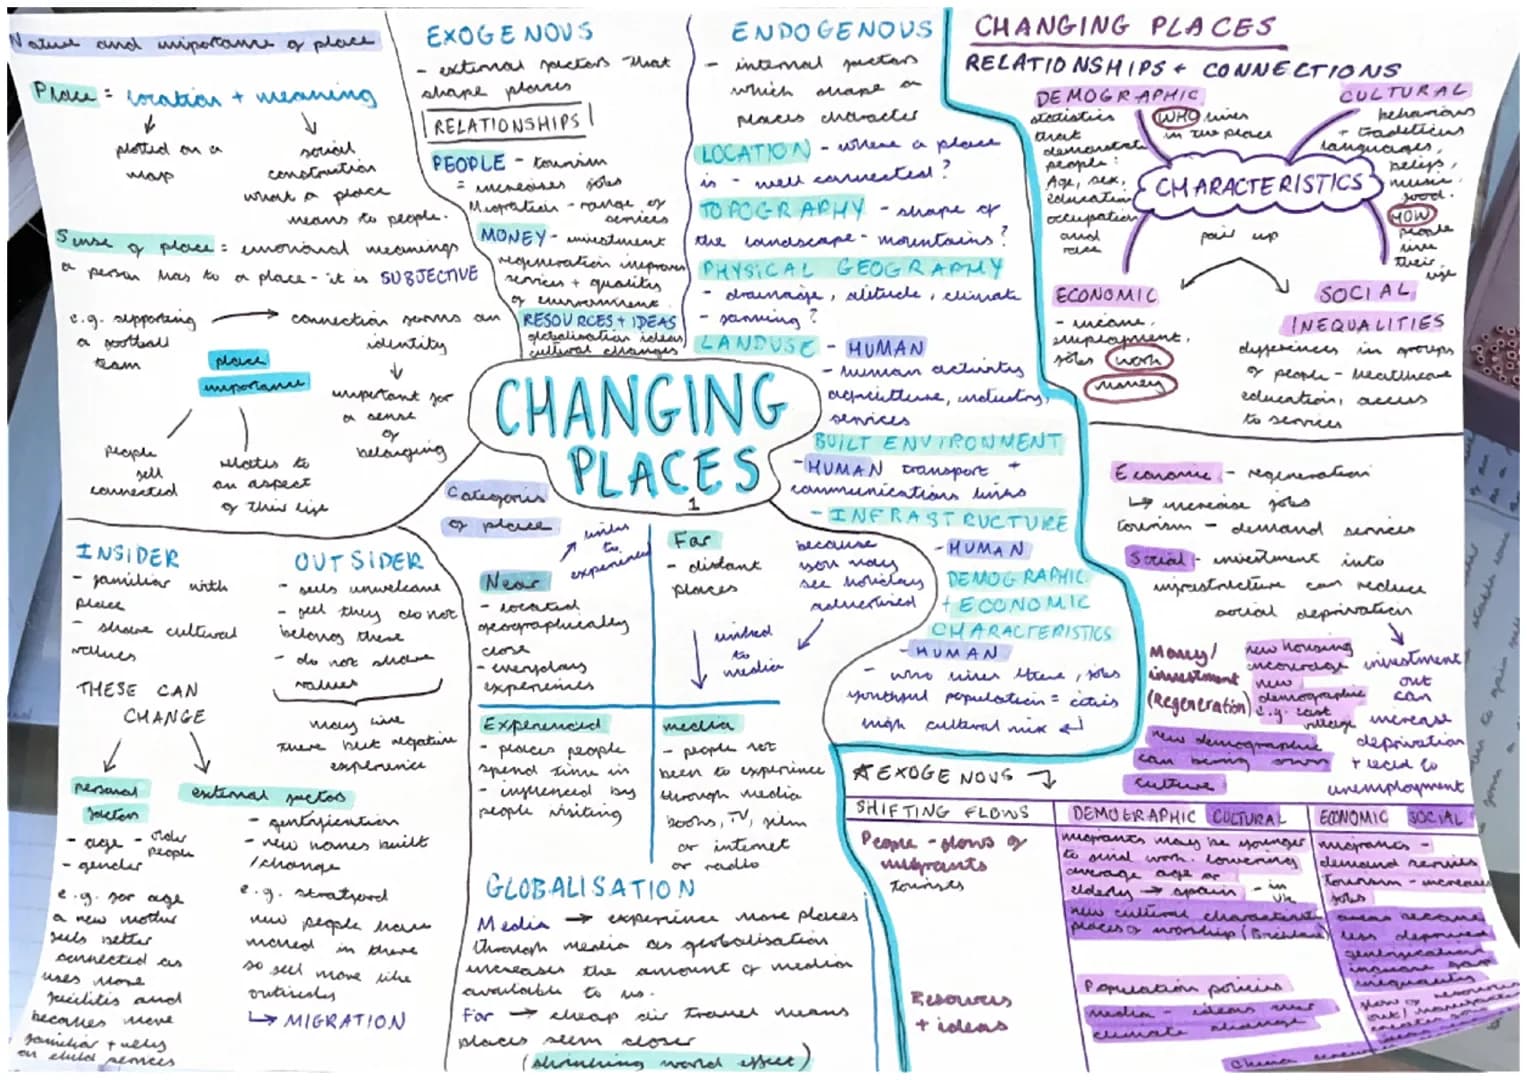 Nature and importance of place
Place = location + meaning
plotted on a
map
social
construction
what a place
means to people.
Sense of place = emotional meanings
a person has to a place - it is SUBJECTIVE
e.g. supporting
a football
team
connection forms an
identity
important for
a sense
of
belonging
place
importance
people
feel
connected
relates to
an aspect
of their life
EXOGENOUS
- external factors that
shape places
RELATIONSHIPS
PEOPLE - tourism
= increases jobs
Migration - range of
services
MONEY - investment
regeneration improves
services + quality
of environment
RESOURCES + IDEAS
globalisation ideas
cultural changes
ENDOGENOUS
- internal factors
which shape a
places character
LOCATION - where a place
is - well connected?
TOPOGRAPHY - shape of
the landscape - mountains?
PHYSICAL GEOGRAPHY
- drainage, altitude, climate
- farming?
LANDUSE - HUMAN
- human activity
agriculture, industry,
services
BUILT ENVIRONMENT
- HUMAN transport +
communications links
- INFRASTRUCTURE
- HUMAN
DEMOGRAPHIC
+ ECONOMIC
CHARACTERISTICS
- HUMAN
- who lives there, jobs
youthful population = cities
high cultural mix
CHANGING
PLACES
1
INSIDER
- familiar with
place
- share cultural
values
OUTSIDER
- feels unwelcome
- feel they do not
belong there
- do not share
values
may live
there but negative
experience
THESE CAN
CHANGE
personal
factors
- age - older
people
- gender
e.g. for age
a new mother
feels better
connected as
uses more
facilities and
becomes more
familiar + relies
on child services
external factors
- gentrification
- new names built
/change
e.g. stratford
new people have
moved in there
so feel more like
outsiders
MIGRATION
Categories
of place
links
to
experience
Near
- located
geographically
close
- everyday
experiences
Far
- distant
places
because
you may
see holidays
advertised
linked
to
media
Experienced
- places people
spend time in
- influenced by
people visiting
media
- people not
been to experience
through media
books, TV, film
or internet
or radio
GLOBALISATION
Media → experience more places
through media as globalisation
increases the amount of media
available to us.
Far → cheap air travel means
places seem closer
(shrinking world effect)
CHANGING PLACES
RELATIONSHIPS + CONNECTIONS
DEMOGRAPHIC
statistics
that
demonstrate
people:
Age, sex,
education
occupation
and
race
WHO lives
in the place
CULTURAL
behaviours
+ traditions
languages,
beliefs,
music,
food.
HOW
people
live
their
life
CHARACTERISTICS
pair up
ECONOMIC
- income,
employment,
jobs work
money
SOCIAL
INEQUALITIES
differences in groups
of people - healthcare
education, access
to services
Economic - regeneration
↳ increase jobs
tourism - demand services
Social - investment into
infrastructure can reduce
social deprivation
investment
out
can
increase
deprivation
+ lead to
unemployment
Money/
investment
(Regeneration)
new housing
encourage
new
demographic
e.g. east
village
new demographic
can bring own
culture
* EXOGENOUS
SHIFTING FLOWS
DEMOGRAPHIC CULTURAL
ECONOMIC SOCIAL
People - flows of
migrants
tourists
migrants may be younger
to find work. lowering
average age or
elderly → spain - in
UK
new cultural characteristics
places of worship
migrants -
demand services
tourism - increases
jobs
areas become
less deprived
gentrification
income gap
inequality
flow of resources
Resources
+ ideas
Population policies
media - ideas over
climate change
China